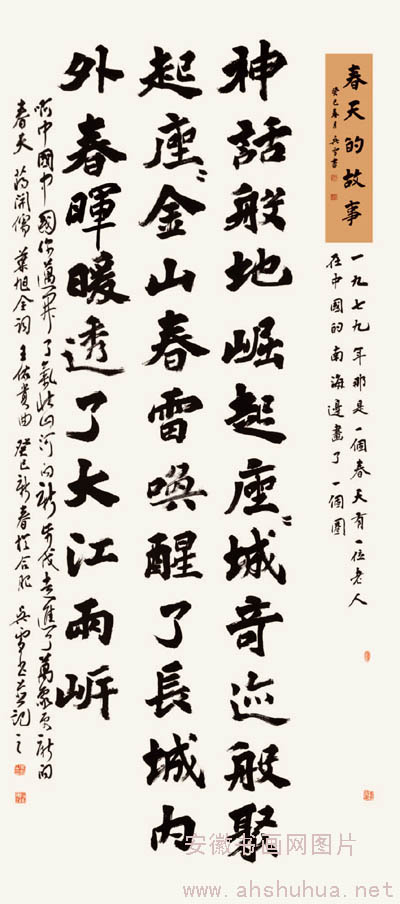 春天的故事
癸巳春月吴雪書
一九七九年那是一個春天有一位老人
在中國的南海邊畫了一個圈
神話般地崛起座〻城奇迹般聚
起座〻金山春雷喚醒了長城内
外春暉暖透了大江兩岸
啊中國中國你邁開了氣壯山河的新步伐走進了萬象更新的
春天 蔣開儒 葉旭全词 王佑貴曲 癸巳新春於合肥 吴雪書並記之
安徽书画网图片
www.ahshuhua.net